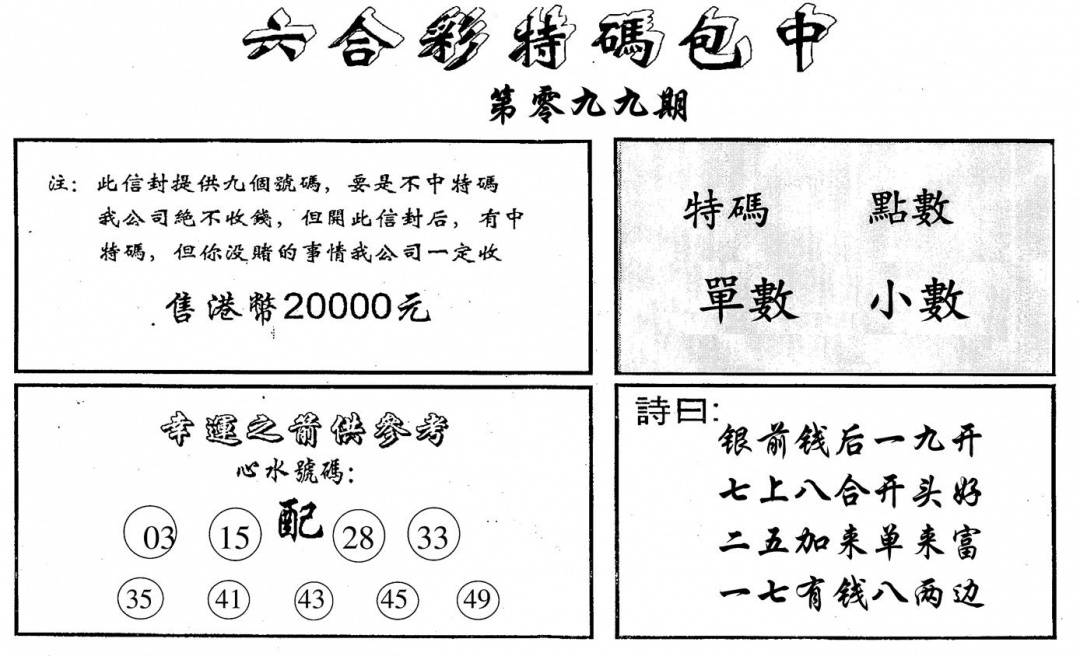 六合彩特碼包中
第零九九期
注：此信封提供九個號碼，要是不中特碼
我公司絕不收錢，但開此信封后，有中
特碼，但你没賭的事情我公司一定收
售港幣20000元
特碼 點數
單數 小數
幸運之箭供參考
心水號碼：
03 15 配 28 33
35 41 43 45 49
詩曰：
银前钱后一九开
七上八合开头好
二五加来单来富
一七有钱八两边